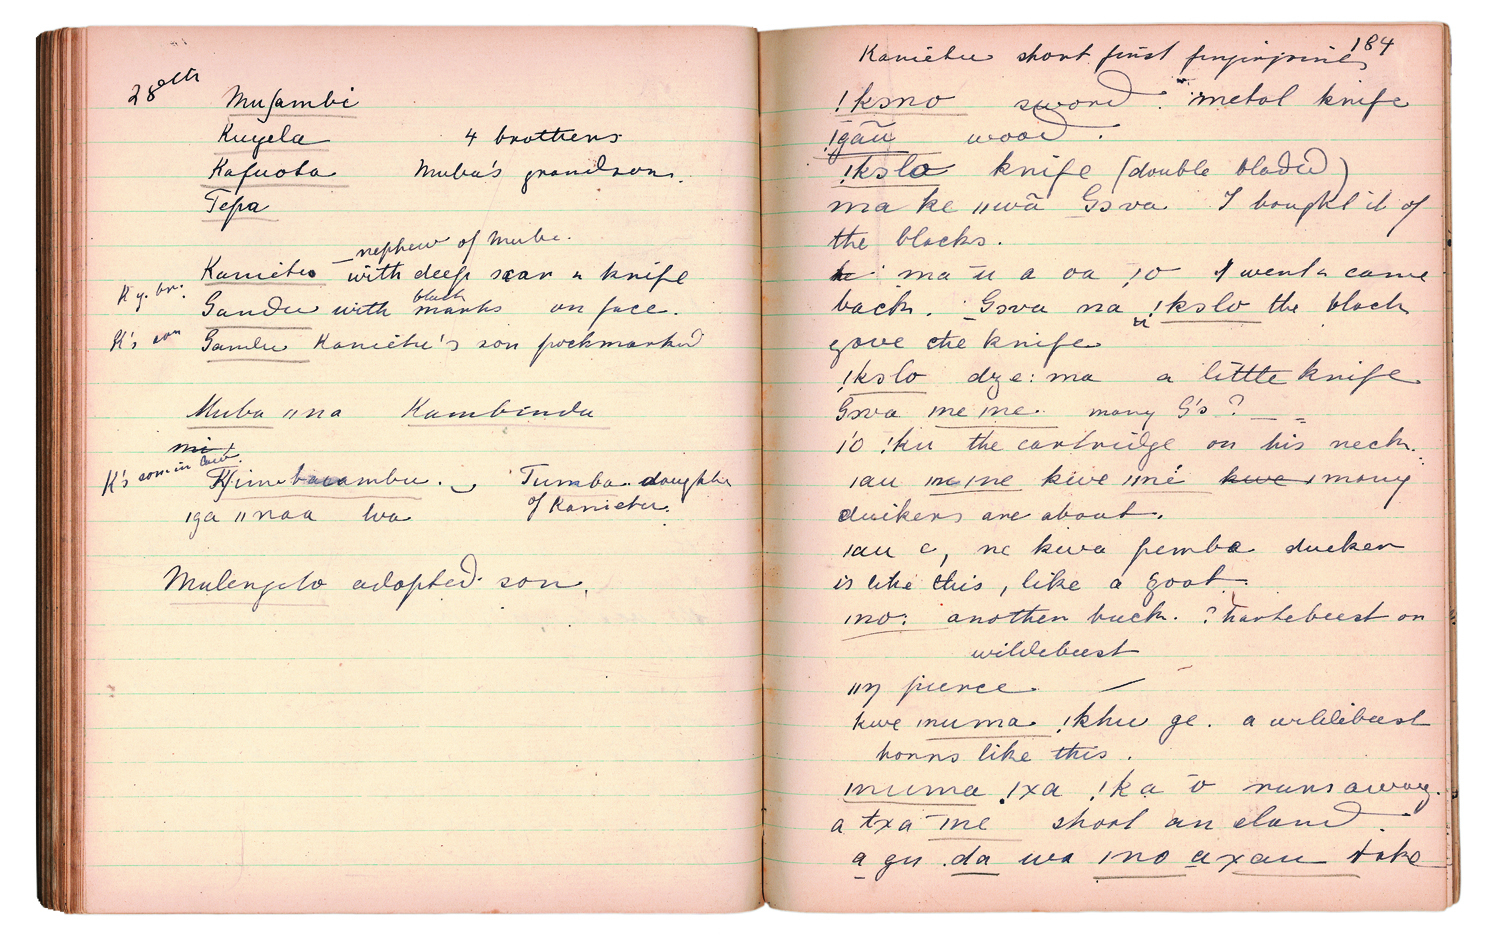 28th
Musambi
Kuyela 4 brothers
Kafuota Muba's grandsons.
Tepa
nephew of Muba.
Kanietu with deep scar a knife
K y. br: Gandu with black marks on face.
K's son Gandu Kanietu's son pockmarked
Muba ǁna Kambinda
K's son-in law. . Tumba daughter
of Kanietu.
ǀga ǁnaa wa
Mulengelo adopted son.
184
Kanietu short first
!kɔno sword. metal knife
!gãu wood.
!kɔlo knife (double bladed)
ma ke ǁwã Gɔva I bought it of
the blacks.
ma u a oa ǀo I went & came
back. Gɔva na !kɔlo the black
gave the knife
!kɔlo dze: ma a little knife
Gɔva ǀne ǀne. many G's?
ǀo !ku the cartridge on his neck.
ǀau ǀne ǀne kwe ǀǀné many
duikers are about.
ǀau e, ne kwa pemba duiker
is like this, like a goat.
ǀno: another buck. ? hartebeest or
wildebeest
ǁŋ pierce
kwe ǀnuma !khu ge. a wildebeest
horns like this.
ǀnuma !xa !ka o runs away.
a txa ǀne shoot an eland.
a gu da wa ǀno a xau take